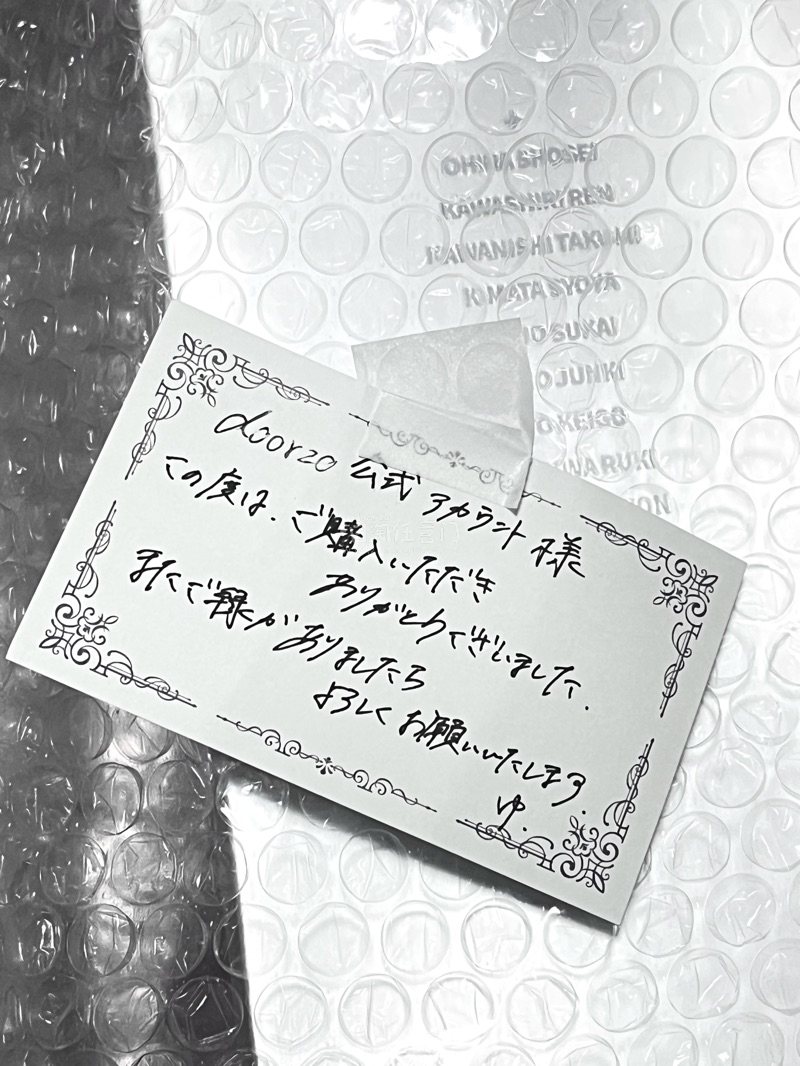 KAWASHIRI REN
KAWANISHI TAKUMI
KIMATA SYOYA
SUKAI
JUNKI
KEIGO
RUKI
ION
doorzo 公式アカウント様
この度は、ご購入いただき
ありがとうございました。
またご縁がありましたら
よろしくお願いいたします。
ゆ.